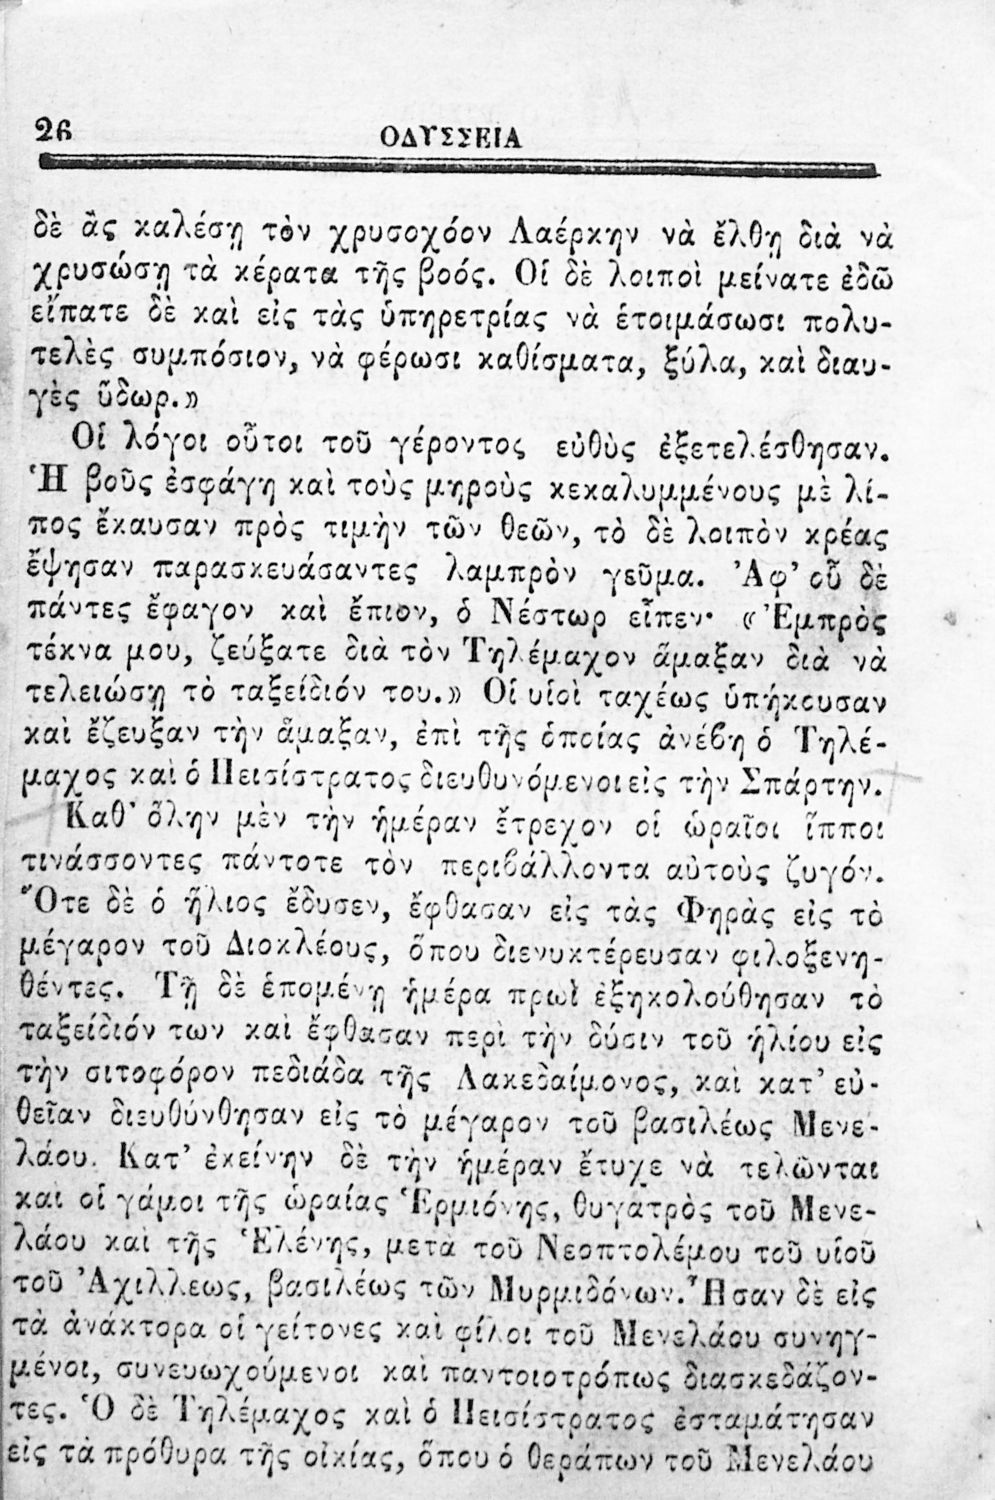 26 ΟΔΥΣΣΕΙΑ
δὲ ἂς καλέσῃ τὸν χρυσοχόον Λαέρκην νὰ ἔλθῃ διὰ νὰ
χρυσώσῃ τὰ κέρατα τῆς βοός. Οἱ δὲ λοιποὶ μείνατε ἐδῶ
εἴπατε δὲ καὶ εἰς τὰς ὑπηρετρίας νὰ ἑτοιμάσωσι πολυ-
τελὲς συμπόσιον, νὰ φέρωσι καθίσματα, ξύλα, καὶ διαυ-
γὲς ὕδωρ.»
Οἱ λόγοι οὗτοι τοῦ γέροντος εὐθὺς ἐξετελέσθησαν.
Ἡ βοῦς ἐσφάγη καὶ τοὺς μηροὺς κεκαλυμμένους μὲ λί-
πος ἔκαυσαν πρὸς τιμὴν τῶν θεῶν, τὸ δὲ λοιπὸν κρέας
ἔψησαν παρασκευάσαντες λαμπρὸν γεῦμα. Ἀφ’ οὗ δὲ
πάντες ἔφαγον καὶ ἔπιον, ὁ Νέστωρ εἶπεν· «Ἐμπρὸς
τέκνα μου, ζεύξατε διὰ τὸν Τηλέμαχον ἅμαξαν διὰ νὰ
τελειώσῃ τὸ ταξείδιόν του.» Οἱ υἱοὶ ταχέως ὑπήκουσαν
καὶ ἔζευξαν τὴν ἅμαξαν, ἐπὶ τῆς ὁποίας ἀνέβη ὁ Τηλέ-
μαχος καὶ ὁ Πεισίστρατος διευθυνόμενοι εἰς τὴν Σπάρτην.
Καθ’ ὅλην μὲν τὴν ἡμέραν ἔτρεχον οἱ ὡραῖοι ἵπποι
τινάσσοντες πάντοτε τὸν περιβάλλοντα αὐτοὺς ζυγόν.
Ὅτε δὲ ὁ ἥλιος ἔδυσεν, ἔφθασαν εἰς τὰς Φηρὰς εἰς τὸ
μέγαρον τοῦ Διοκλέους, ὅπου διενυκτέρευσαν φιλοξενη-
θέντες. Τῇ δὲ ἑπομένῃ ἡμέρα πρωῒ ἐξηκολούθησαν τὸ
ταξείδιόν των καὶ ἔφθασαν περὶ τὴν δύσιν τοῦ ἡλίου εἰς
τὴν σιτοφόρον πεδιάδα τῆς Λακεδαίμονος, καὶ κατ’ εὐ-
θεῖαν διευθύνθησαν εἰς τὸ μέγαρον τοῦ βασιλέως Μενε-
λάου. Κατ’ ἐκείνην δὲ τὴν ἡμέραν ἔτυχε νὰ τελῶνται
καὶ οἱ γάμοι τῆς ὡραίας Ἑρμιόνης, θυγατρὸς τοῦ Μενε-
λάου καὶ τῆς Ἑλένης, μετὰ τοῦ Νεοπτολέμου τοῦ υἱοῦ
τοῦ Ἀχιλλεως, βασιλέως τῶν Μυρμιδόνων. Ἦσαν δὲ εἰς
τὰ ἀνάκτορα οἱ γείτονες καὶ φίλοι τοῦ Μενελάου συνηγ-
μένοι, συνευωχούμενοι καὶ παντοιοτρόπως διασκεδάζον-
τες. Ὁ δὲ Τηλέμαχος καὶ ὁ Πεισίστρατος ἐσταμάτησαν
εἰς τὰ πρόθυρα τῆς οἰκίας, ὅπου ὁ θεράπων τοῦ Μενελάου